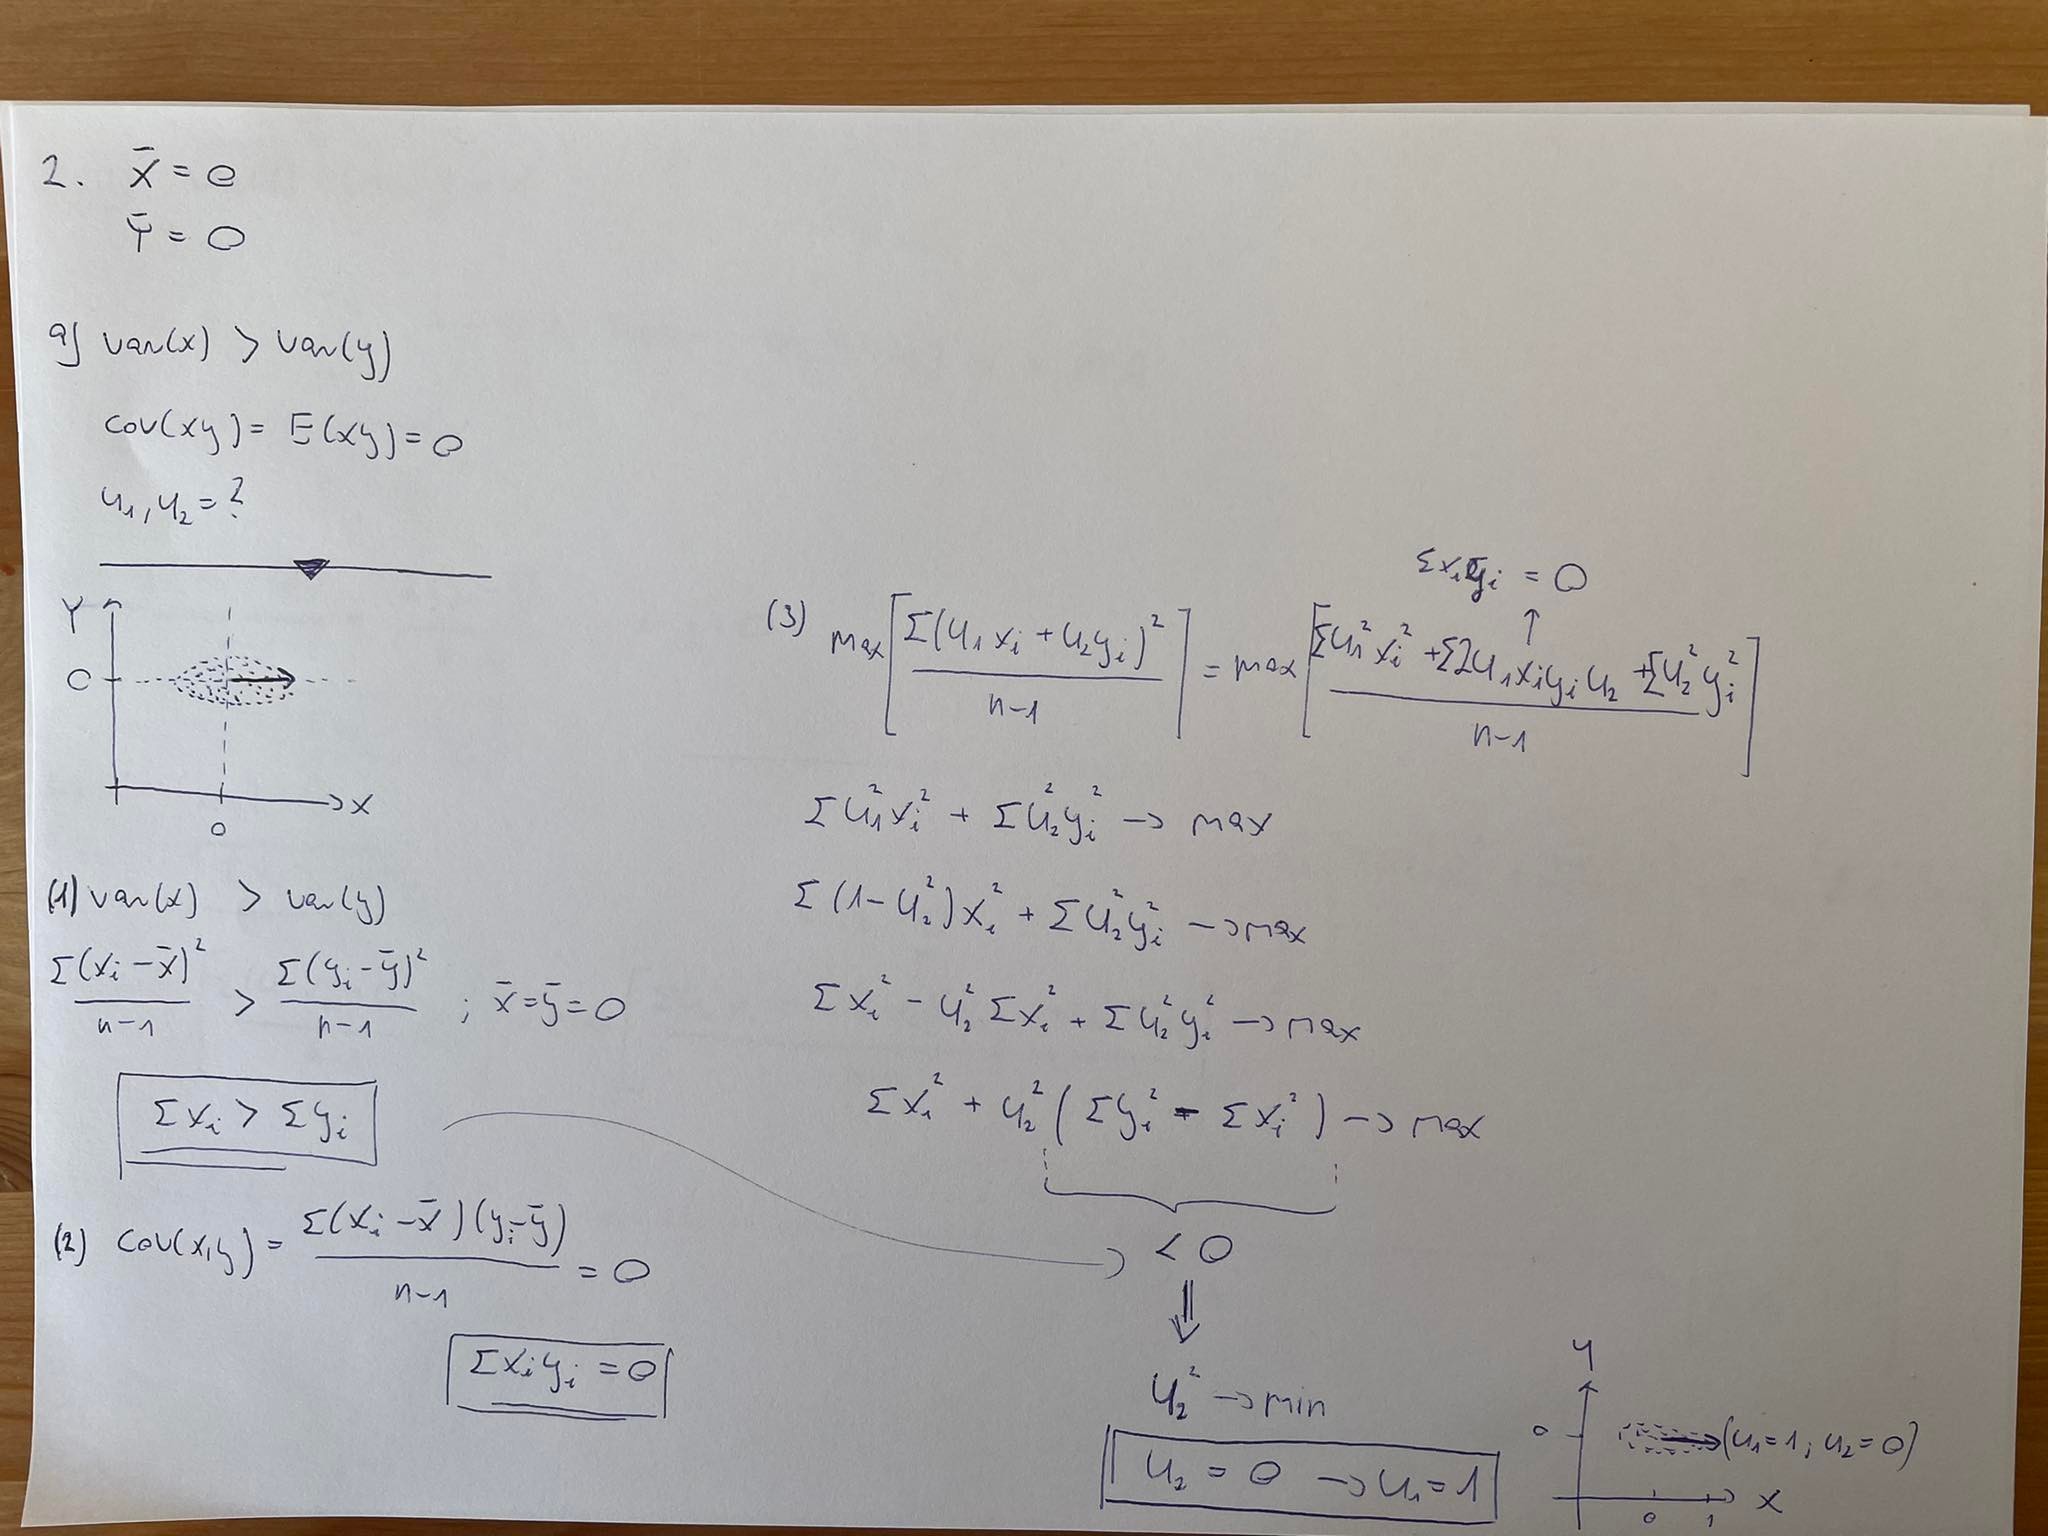 2. x̄ = 0
Ȳ = 0
a) var(x) > var(y)
cov(xy) = E(xy) = 0
u₁, u₂ = ?
Y
0
0
x
(1) var(x) > var(y)
Σ(xᵢ - x̄)² / n-1 > Σ(yᵢ - ȳ)² / n-1 ; x̄ = ȳ = 0
Σxᵢ > Σyᵢ
(2) cov(x,y) = Σ(xᵢ - x̄)(yᵢ - ȳ) / n-1 = 0
Σxᵢyᵢ = 0
Σxᵢyᵢ = 0
↑
(3) max[Σ(u₁xᵢ + u₂yᵢ)² / n-1] = max[Σu₁²xᵢ² + Σ2u₁xᵢyᵢu₂ + Σu₂²yᵢ² / n-1]
Σu₁²xᵢ² + Σu₂²yᵢ² → max
Σ(1 - u₂²)xᵢ² + Σu₂²yᵢ² → max
Σxᵢ² - u₂²Σxᵢ² + Σu₂²yᵢ² → max
Σxᵢ² + u₂²(Σyᵢ² - Σxᵢ²) → max
< 0
⇓
u₂² → min
u₂ = 0 → u₁ = 1
y
0
(u₁ = 1; u₂ = 0)
x
0 1